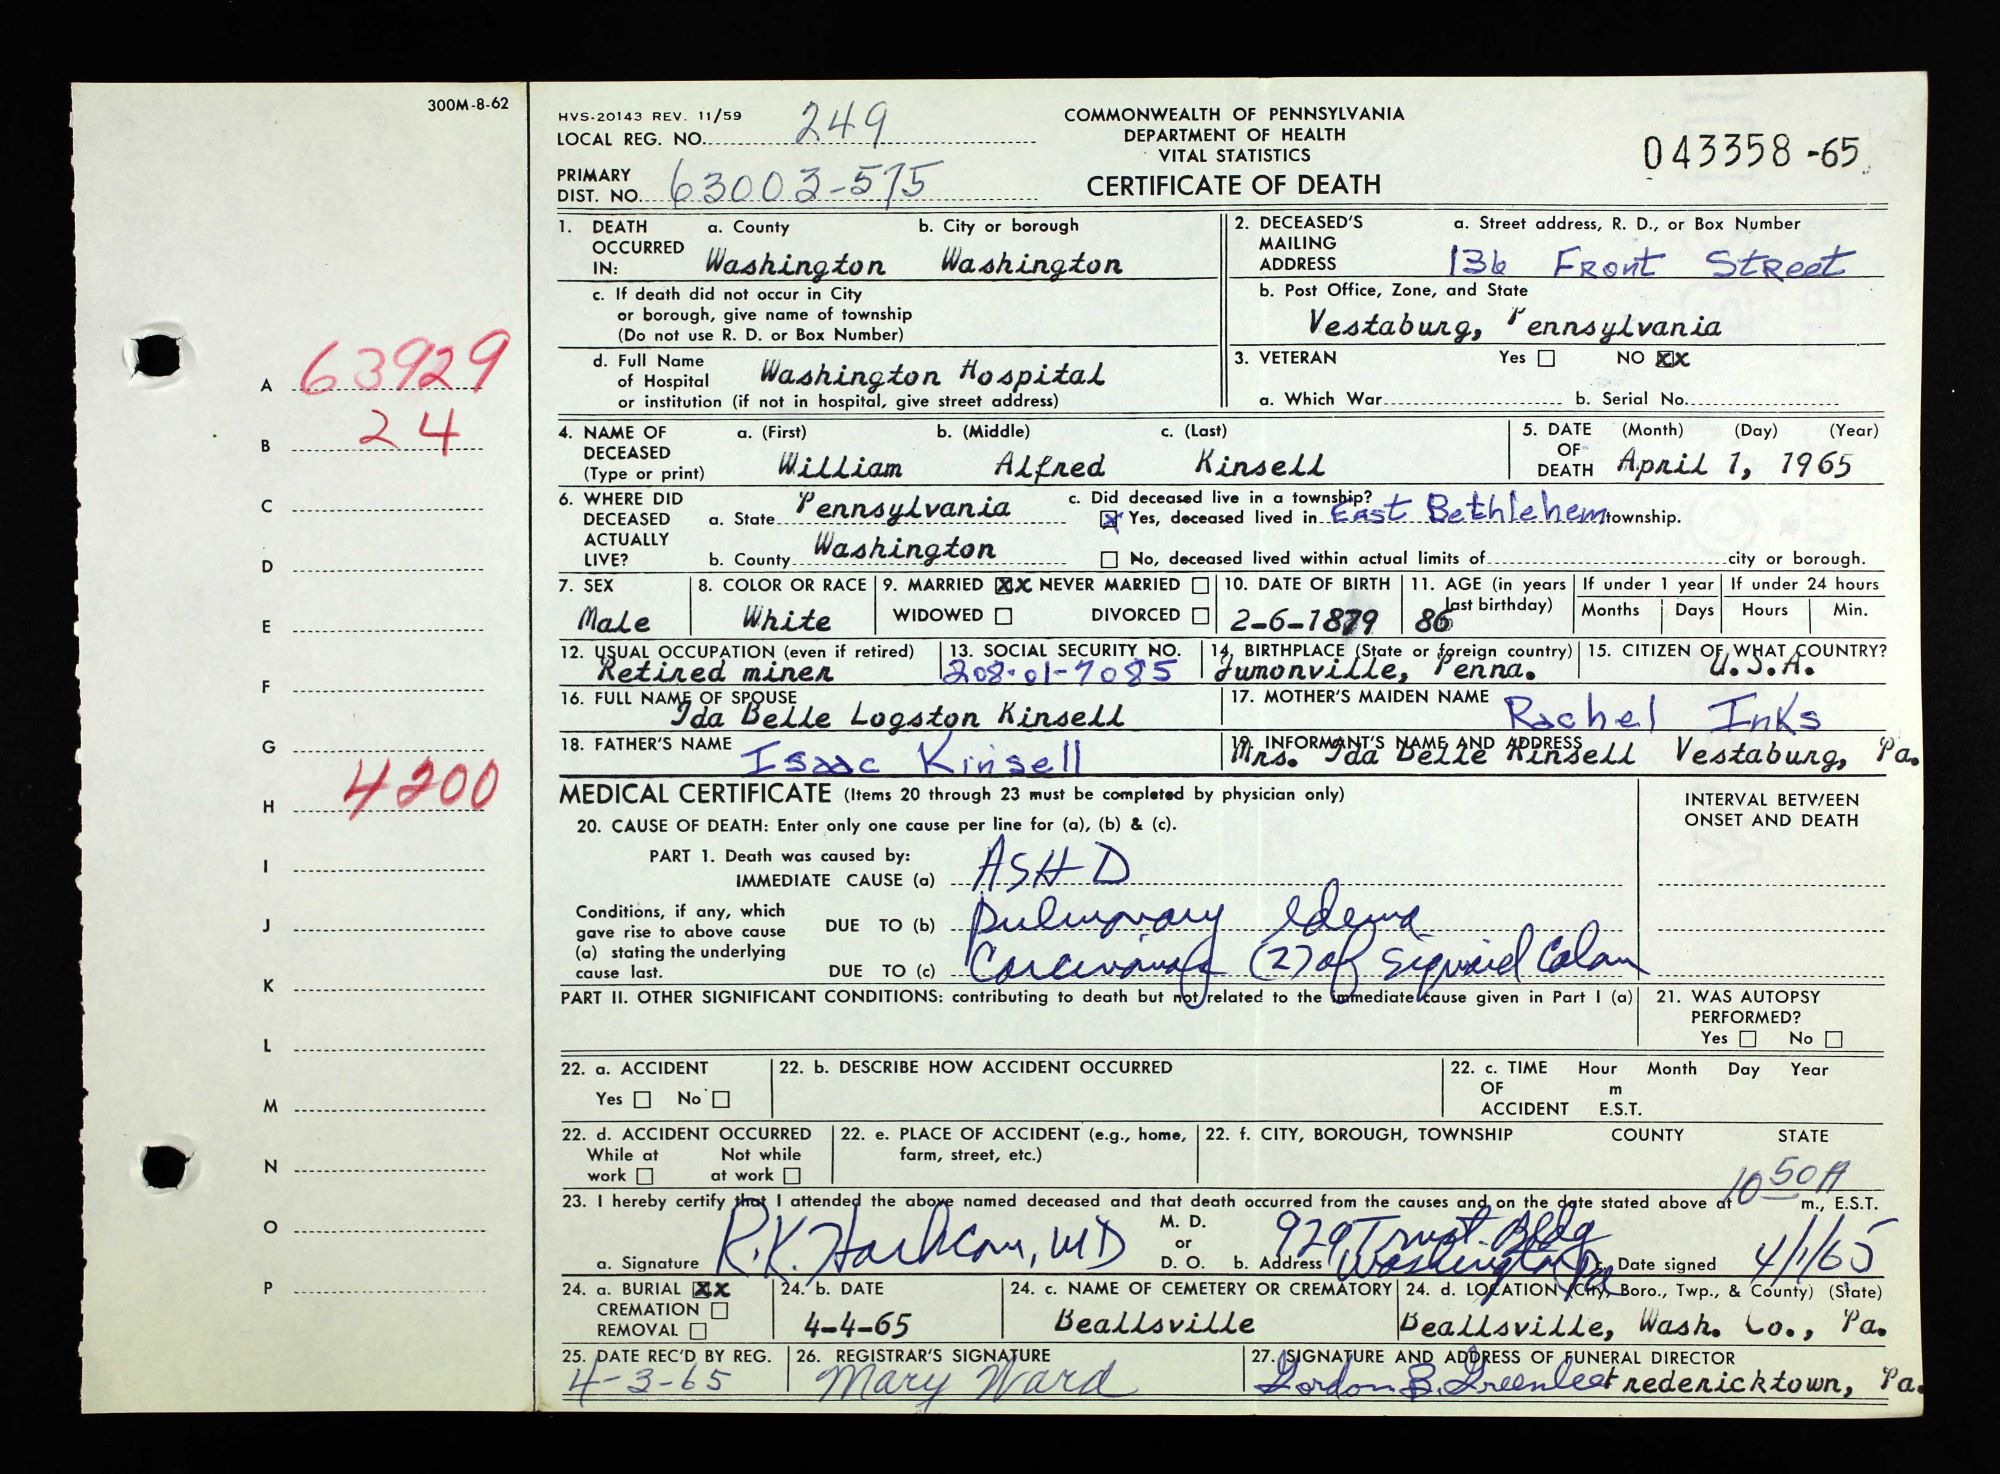 300M-8-62
HVS-20143 REV. 11/59
LOCAL REG. NO. 249
PRIMARY
DIST. NO. 63003-575
COMMONWEALTH OF PENNSYLVANIA
DEPARTMENT OF HEALTH
VITAL STATISTICS
CERTIFICATE OF DEATH
043358-65
1. DEATH OCCURRED IN: a. County Washington b. City or borough Washington
c. If death did not occur in City
or borough, give name of township
(Do not use R. D. or Box Number)
d. Full Name
of Hospital Washington Hospital
or institution (if not in hospital, give street address)
2. DECEASED'S MAILING ADDRESS a. Street address, R. D., or Box Number
136 Front Street
b. Post Office, Zone, and State
Vestaburg, Pennsylvania
3. VETERAN Yes NO XX
a. Which War b. Serial No.
4. NAME OF DECEASED (Type or print) a. (First) b. (Middle) c. (Last)
William Alfred Kinsell
5. DATE OF DEATH (Month) (Day) (Year)
April 1, 1965
6. WHERE DID DECEASED ACTUALLY LIVE? a. State Pennsylvania
b. County Washington
c. Did deceased live in a township?
X Yes, deceased lived in East Bethlehem township.
No, deceased lived within actual limits of city or borough.
7. SEX Male
8. COLOR OR RACE White
9. MARRIED XX NEVER MARRIED
WIDOWED DIVORCED
10. DATE OF BIRTH 2-6-1879
11. AGE (in years last birthday) 86
If under 1 year Months Days
If under 24 hours Hours Min.
12. USUAL OCCUPATION (even if retired) Retired miner
13. SOCIAL SECURITY NO. 208-01-7085
14. BIRTHPLACE (State or foreign country) Jumonville, Penna.
15. CITIZEN OF WHAT COUNTRY? U.S.A.
16. FULL NAME OF SPOUSE Ida Belle Logston Kinsell
17. MOTHER'S MAIDEN NAME Rachel Inks
18. FATHER'S NAME Isaac Kinsell
19. INFORMANT'S NAME AND ADDRESS Mrs. Ida Belle Kinsell Vestaburg, Pa.
MEDICAL CERTIFICATE (Items 20 through 23 must be completed by physician only)
INTERVAL BETWEEN
ONSET AND DEATH
20. CAUSE OF DEATH: Enter only one cause per line for (a), (b) & (c).
PART 1. Death was caused by:
IMMEDIATE CAUSE (a) ASHD
Conditions, if any, which
gave rise to above cause
(a) stating the underlying
cause last.
DUE TO (b) Pulmonary edema
DUE TO (c) Carcinoma (2) of sigmoid Colon
PART II. OTHER SIGNIFICANT CONDITIONS: contributing to death but not related to the immediate cause given in Part I (a)
21. WAS AUTOPSY PERFORMED?
Yes No
22. a. ACCIDENT
Yes No
22. b. DESCRIBE HOW ACCIDENT OCCURRED
22. c. TIME OF ACCIDENT Hour Month Day Year
m
E.S.T.
22. d. ACCIDENT OCCURRED
While at work Not while at work
22. e. PLACE OF ACCIDENT (e.g., home, farm, street, etc.)
22. f. CITY, BOROUGH, TOWNSHIP COUNTY STATE
23. I hereby certify that I attended the above named deceased and that death occurred from the causes and on the date stated above at 10 50 A m., E.S.T.
a. Signature R.K. MD
M. D. or D. O.
b. Address 929 Trust Bldg
Washington Pa
c. Date signed 4/1/65
24. a. BURIAL XX
CREMATION
REMOVAL
24. b. DATE 4-4-65
24. c. NAME OF CEMETERY OR CREMATORY Beallsville
24. d. LOCATION (City, Boro., Twp., & County) (State)
Beallsville, Wash. Co., Pa.
25. DATE REC'D BY REG. 4-3-65
26. REGISTRAR'S SIGNATURE Mary Ward
27. SIGNATURE AND ADDRESS OF FUNERAL DIRECTOR
Gordon B. Greenlee Fredericktown, Pa.
A 63929
B 24
C
D
E
F
G
H 4200
I
J
K
L
M
N
O
P